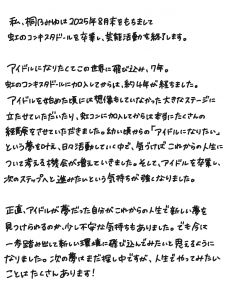 私、桐乃みゆは2025年8月末をもちまして
虹のコンキスタドールを卒業し、芸能活動を終了します。
アイドルになりたくてこの世界に飛び込み、7年。
虹のコンキスタドールに加入してからは、約4年が経ちました。
アイドルを始めた頃には想像もしていなかった大きなステージに
立たせていただいたり、虹コンに加入してからは本当にたくさんの
経験をさせていただきました。幼い頃からの「アイドルになりたい」
という夢を叶え、日々活動していく中で、気づけばこれからの人生に
ついて考える機会が増えていきました。そして、アイドルを卒業し、
次のステップへと進みたいという気持ちが強くなりました。
正直、アイドルが夢だった自分がこれからの人生で新しい夢を
見つけられるのか、少し不安な気持ちもありました。でも今は
一歩踏み出して新しい環境に飛び込んでみたいと思えるように
なりました。次の夢はまだ探し中ですが、人生でやってみたい
ことはたくさんあります！